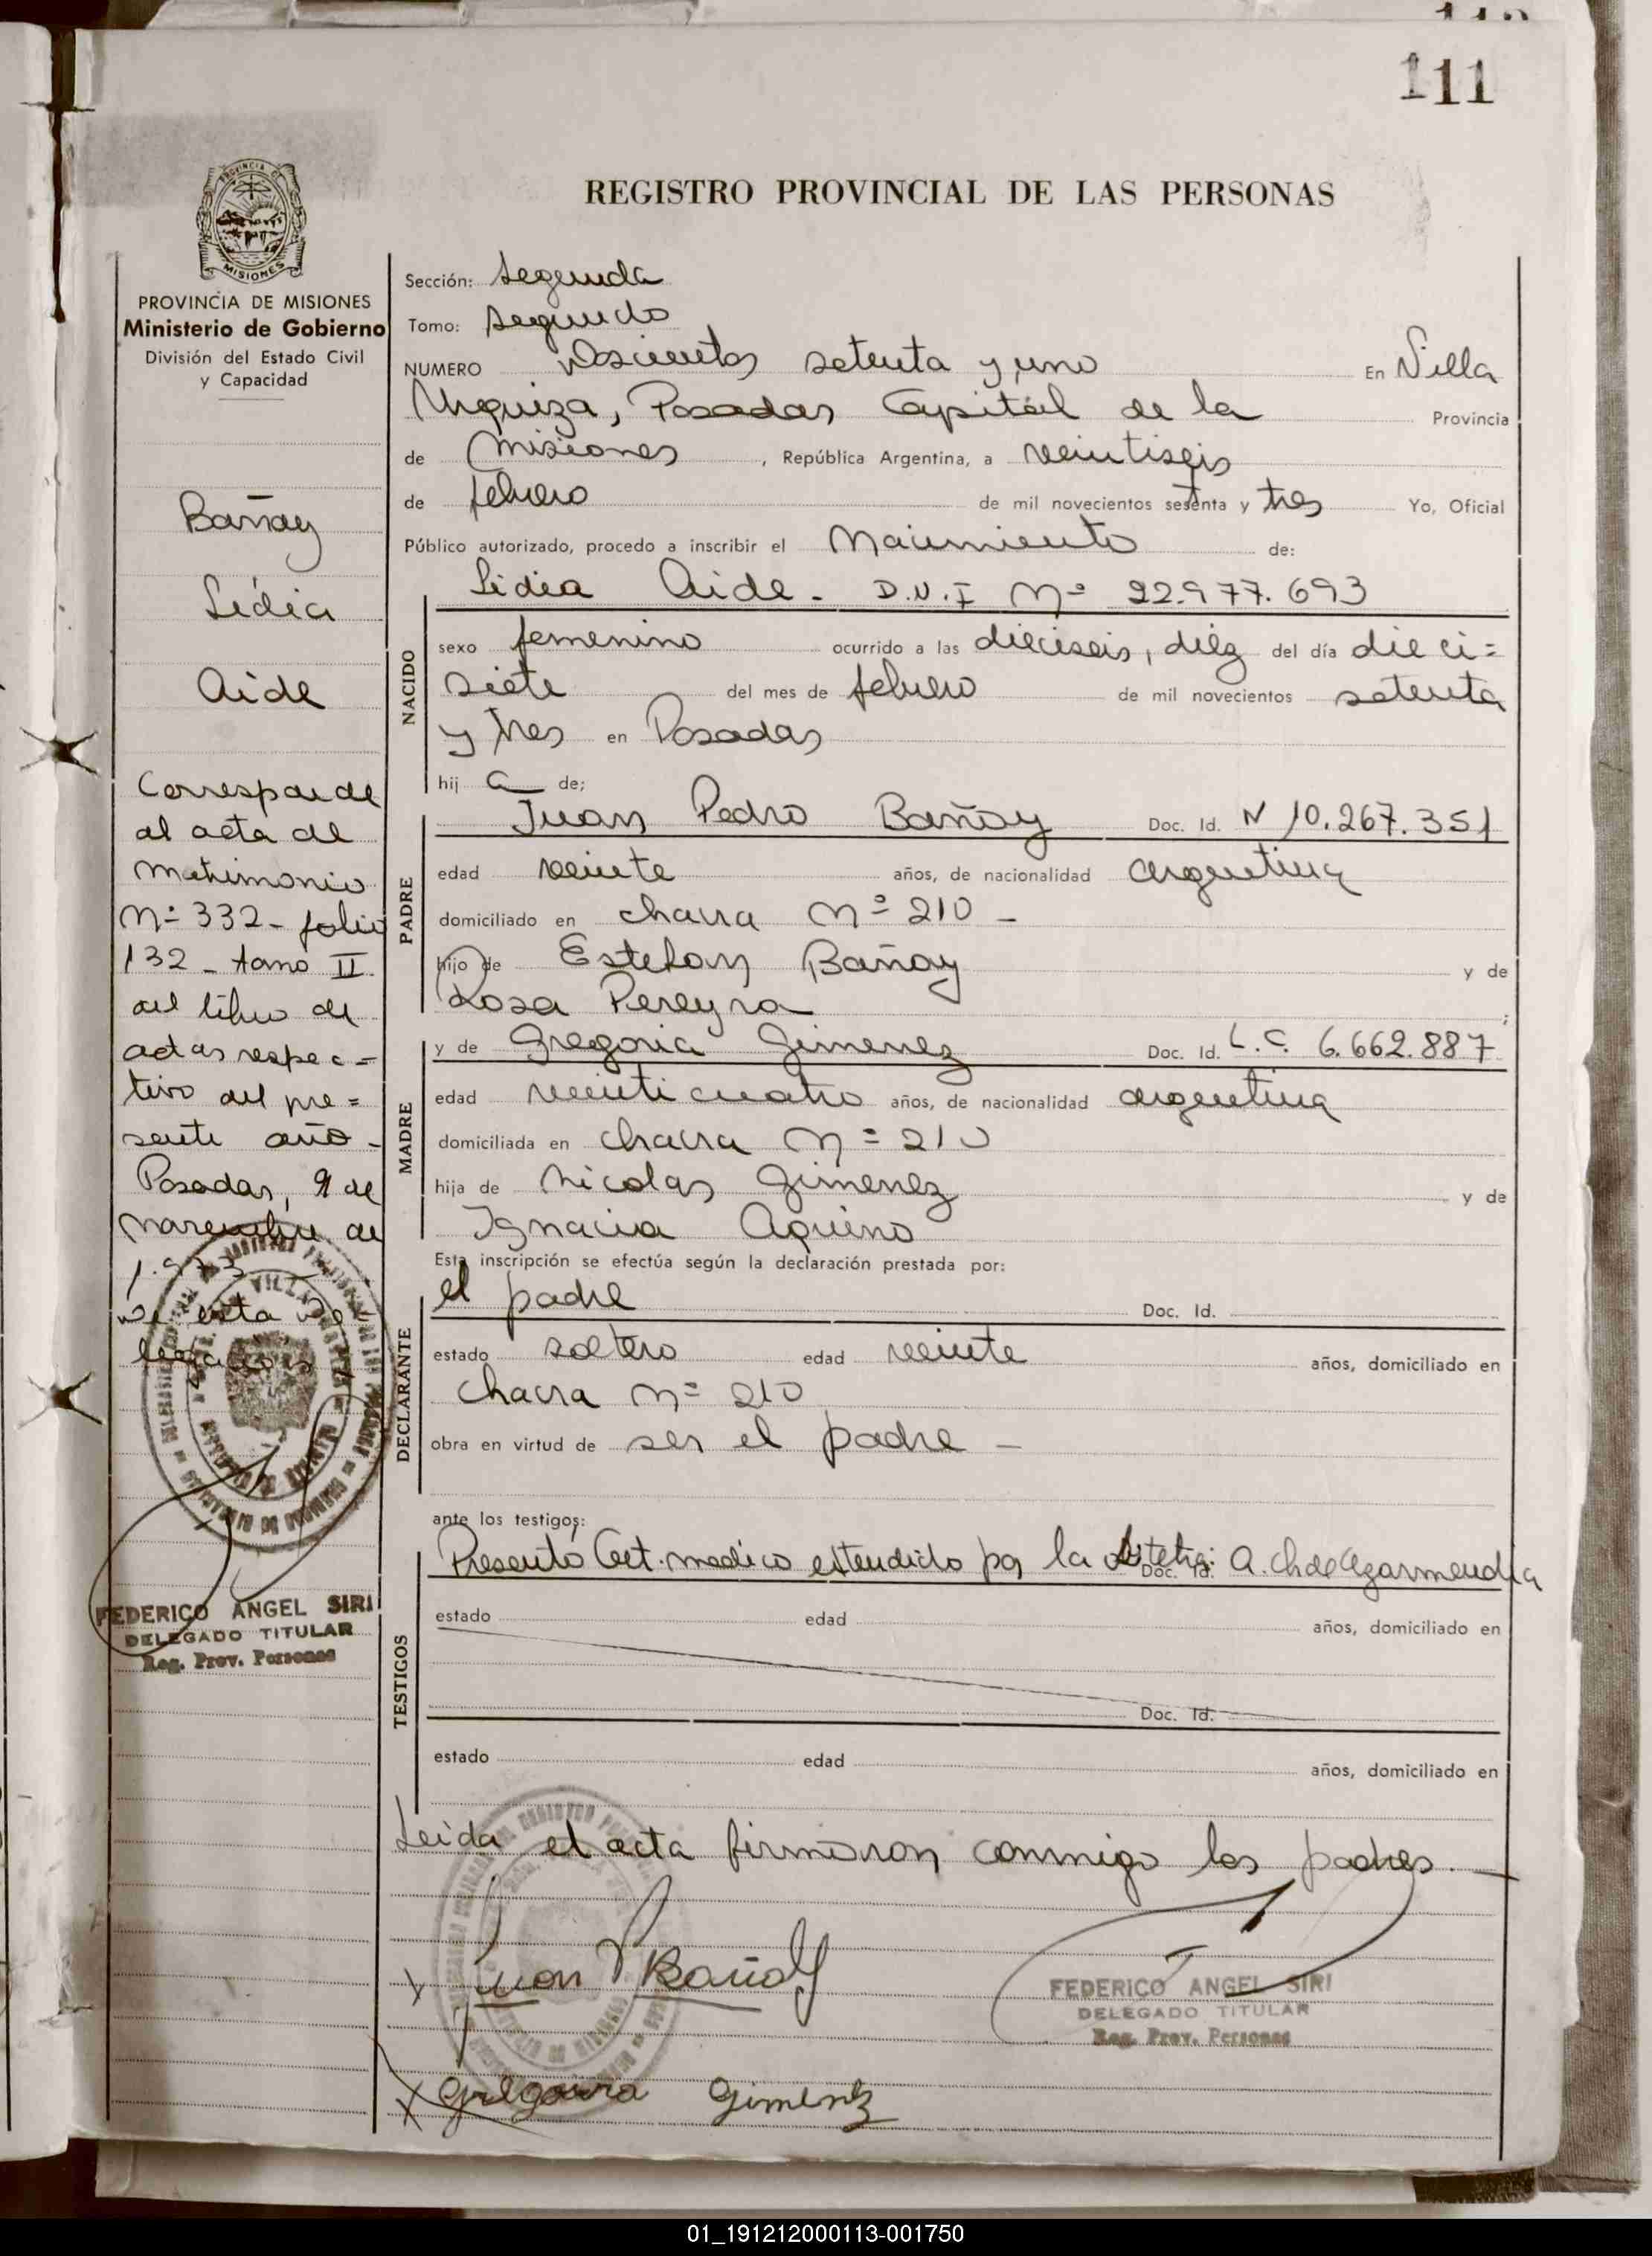 111
REGISTRO PROVINCIAL DE LAS PERSONAS
PROVINCIA DE MISIONES
Ministerio de Gobierno
División del Estado Civil
y Capacidad
Bañay
Lidia
Aide
Corresponde
al acta de
matrimonio
Nº 332 - folio
132 - tomo II
del libro de
actas respec=
tivo del pre=
sente año -
Posadas, 9 de
noviembre de
1.973
De esta De-
legación
FEDERICO ANGEL SIRI
DELEGADO TITULAR
Reg. Prov. Personas
Sección: Segunda
Tomo: Segundo
NUMERO Doscientos setenta y uno En Villa
Urquiza, Posadas Capital de la Provincia
de Misiones, República Argentina, a veintiseis
de febrero de mil novecientos setenta y tres Yo, Oficial
Público autorizado, procedo a inscribir el Nacimiento de:
NACIDO
Lidia Aide - D.N.I Nº 22.977.693
sexo femenino ocurrido a las dieciseis, diez del día dieci=
siete del mes de febrero de mil novecientos setenta
y tres en Posadas
hija de;
PADRE
Juan Pedro Bañay Doc. Id. N 10.267.351
edad veinte años, de nacionalidad argentina
domiciliado en chacra Nº 210 -
hijo de Esteban Bañay y de
Rosa Pereyra ;
MADRE
y de Gregoria Gimenez Doc. Id. L.C. 6.662.887
edad veinticuatro años, de nacionalidad argentina
domiciliada en chacra Nº 210
hija de Nicolas Gimenez y de
Ignacia Aquino
Esta inscripción se efectúa según la declaración prestada por:
DECLARANTE
el padre Doc. Id.
estado soltero edad veinte años, domiciliado en
chacra Nº 210
obra en virtud de ser el padre -
ante los testigos:
TESTIGOS
Presentó Cert. medico extendido por la Doc. Id.
estado edad años, domiciliado en
Doc. Id.
estado edad años, domiciliado en
Leida el acta firmaron conmigo los padres. -
Juan P Bañay
FEDERICO ANGEL SIRI
DELEGADO TITULAR
Reg. Prov. Personas
Gregoria Gimenez
01_191212000113-001750